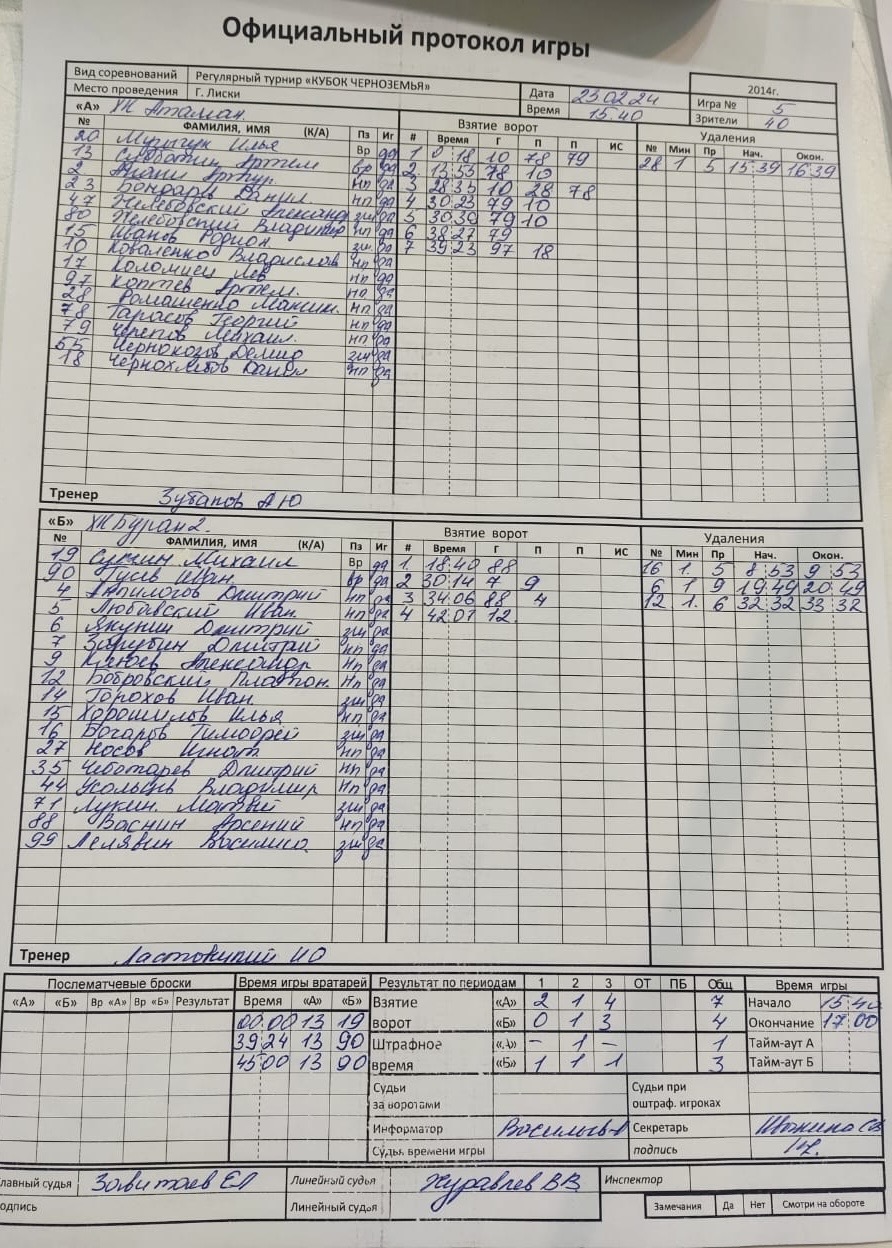 Официальный протокол игры
Вид соревнований Регулярный турнир «КУБОК ЧЕРНОЗЕМЬЯ» 2014г.
Место проведения Г. Лиски Дата 23 02 24 Игра № 5
Время 15.40 Зрители 40
«А» ХК Атаман Взятие ворот Удаления
№ ФАМИЛИЯ, ИМЯ (К/А) Пз Иг # Время Г П П ИС № Мин Пр Нач. Окон.
20 Илья Вр да 1 0 18 10 78 79 28 1 5 15 39 16 39
13 Артем вр да 2 13 53 78 10
2 Артур нп да 3 28 33 10 28 78
23 Бондарь Данил нп да 4 30 23 79 10
47 Желебовский зщ да 5 30 30 79 10
80 Желебовский Владимир нп да 6 38 27 79
15 Иванов Родион зщ да 7 39 23 97 18
10 Коваленко Владислав нп да
17 Коломиец Лев нп да
97 Коптев Артем нп да
28 Ромащенко Максим нп да
78 Тарасов Георгий нп да
79 Черепов Михаил нп да
55 Чернокозов Демид зщ да
18 Данил нп да
Тренер А Ю
«Б» ХК Буран 2 Взятие ворот Удаления
№ ФАМИЛИЯ, ИМЯ (К/А) Пз Иг # Время Г П П ИС № Мин Пр Нач. Окон.
19 Михаил Вр да 1. 18 40 88 16 1. 5 8 53 9 53
90 Гусев Иван вр да 2 30 14 7 9 6 1 9 19 49 20 49
4 Анпилогов Дмитрий нп да 3 34 06 88 4 12 1. 6 32 32 33 32
5 Любавский Иван нп да 4 42 01 12
6 Якунин Дмитрий зщ да
7 Зарубин Дмитрий нп да
9 Князев Александр нп да
12 Бобровский Платон нп да
14 Горохов Иван зщ да
15 Хорошилов Илья нп да
16 Бочаров Тимофей зщ да
27 Носов Игнат нп да
35 Чеботарев Дмитрий нп да
44 Усольцев Владимир нп да
71 Лукин Матвей зщ да
88 Васнин Арсений нп да
99 Лелявин Василий зщ да
Тренер И О
Послематчевые броски Время игры вратарей Результат по периодам 1 2 3 ОТ ПБ Общ Время игры
«А» «Б» Вр «А» Вр «Б» Результат Время «А» «Б» Взятие «А» 2 1 4 7 Начало 15:40
00:00 13 19 ворот «Б» 0 1 3 4 Окончание 17 00
39 24 13 90 Штрафное «А» – 1 – 1 Тайм-аут А
45 00 13 90 время «Б» 1 1 1 3 Тайм-аут Б
Судьи за воротами Судьи при оштраф. игроках
Информатор Секретарь
Судья времени игры подпись
лавный судья Завитаев ЕЛ Линейный судья Журавлев ВВ Инспектор
одпись Линейный судья Замечания Да Нет Смотри на обороте